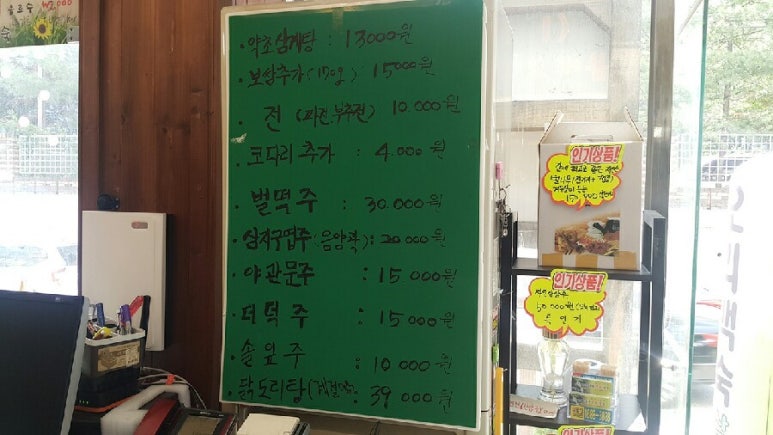 ₩2,000
·약초삼계탕 : 13000원
·보쌈추가(170g) : 15000원
· 전 (파전, 부추전) 10.000원
·코다리 추가 : 4.000원
·벌떡주 : 30.000원
·삼지구엽주(음양곽) : 20000원
·야관문주 : 15000원
·더덕주 : 15000원
·솔잎주 : 10000원
·닭도리탕 : 39000원
인기상품!
인기상품!
50,000원
인기상품!